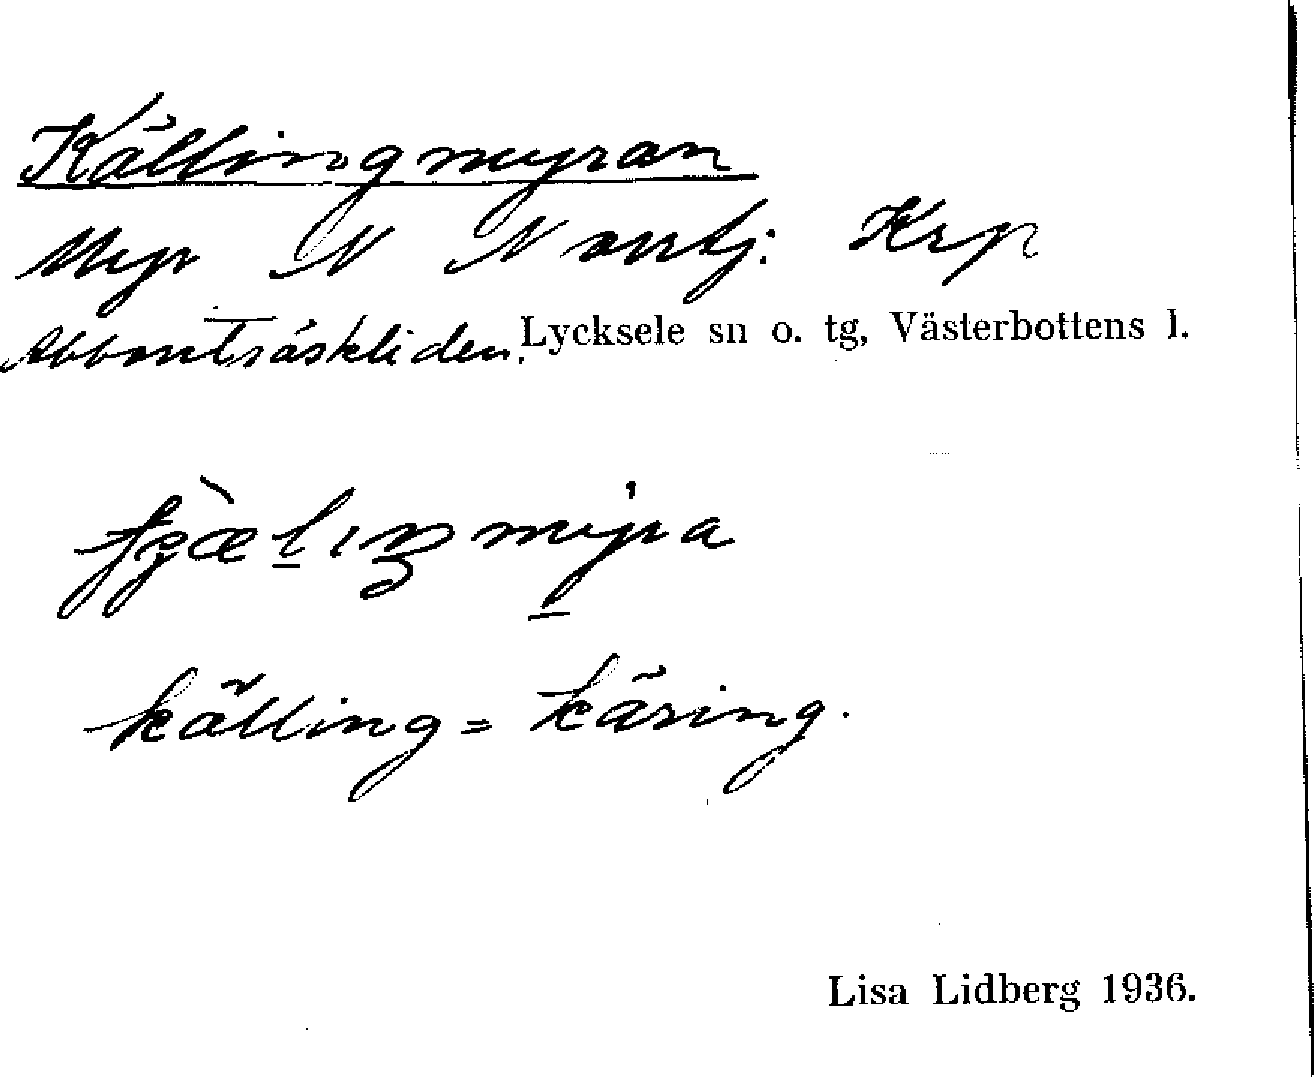 Källingmyran
Myr N Norrtj: Krp
Abborrträskliden. Lycksele sn o. tg, Västerbottens l.
källing = käring.
Lisa Lidberg 1936.